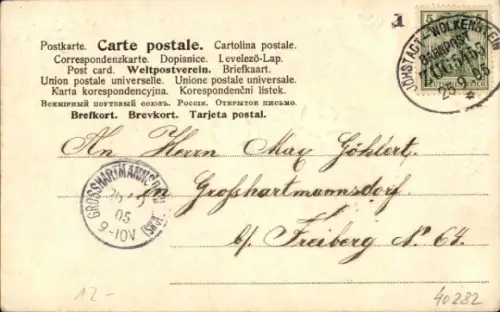 Postkarte. Carte postale. Cartolina postale.
Correspondenzkarte. Dopisnice. Levelező-Lap.
Post card. Weltpostverein. Briefkaart.
Union postale universelle. Unione postale universale.
Karta korespondencyjna. Korespondenční listek.
Всемірный почтовый союзъ. Россия. Открытое письмо.
Brefkort. Brevkort. Tarjeta postal.
1
5
JÖHSTADT - WOLKENSTEIN
BAHNPOST
ZUG 5455
25 9 05
An Herrn Max Göhlert.
in Großhartmannsdorf
b/ Freiberg No 64.
GROSSHARTMANNSDORF
05
9-10V
12.-
40282